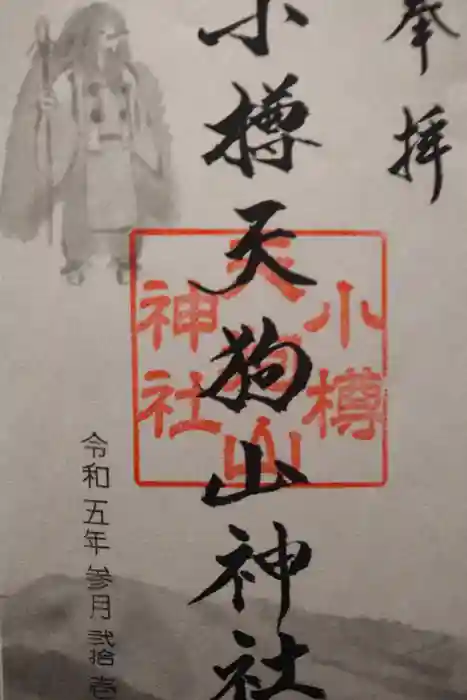 奉拝
小樽天狗山神社
小樽
天狗山
神社
令和五年参月弐拾壱